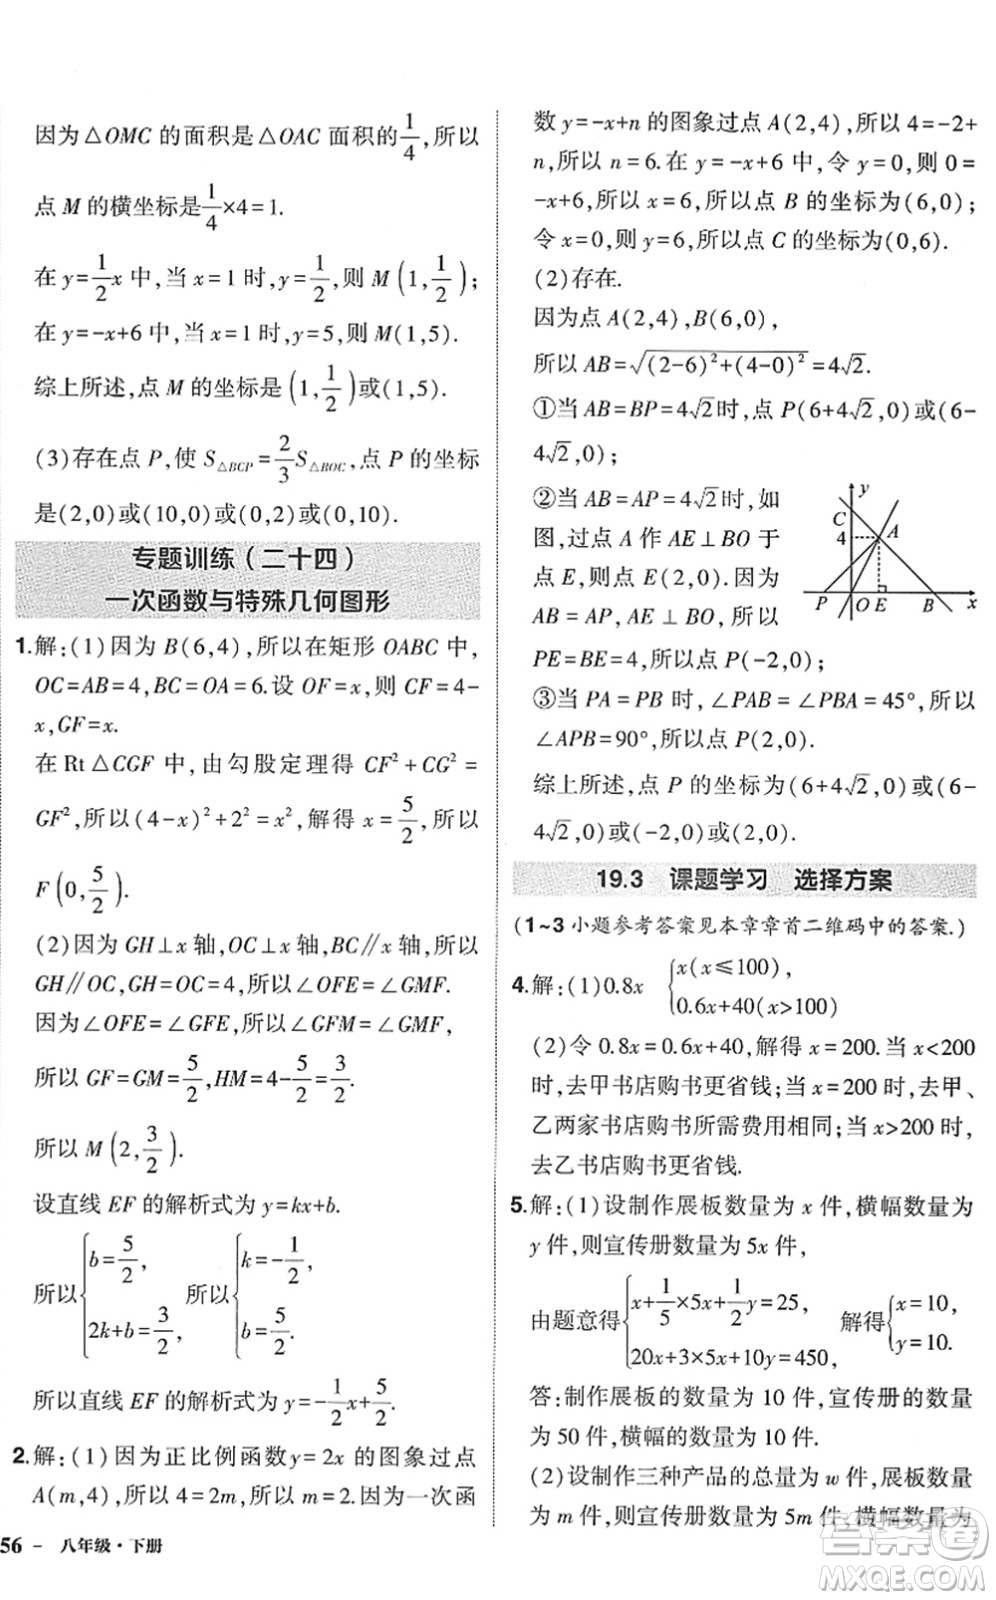 因为△OMC 的面积是△OAC 面积的1/4,所以
点 M 的横坐标是1/4×4=1.
在 y=1/2x 中,当 x=1 时,y=1/2,则 M(1,1/2);
在 y=-x+6 中,当 x=1 时,y=5,则 M(1,5).
综上所述,点 M 的坐标是(1,1/2)或(1,5).
(3)存在点 P,使 S△BCP=2/3S△BOC,点 P 的坐标
是(2,0)或(10,0)或(0,2)或(0,10).
专题训练(二十四)
一次函数与特殊几何图形
1.解:(1)因为 B(6,4),所以在矩形 OABC 中,
OC=AB=4,BC=OA=6.设 OF=x,则 CF=4-
x,GF=x.
在 Rt△CGF 中,由勾股定理得 CF²+CG²=
GF²,所以(4-x)²+2²=x²,解得 x=5/2,所以
F(0,5/2).
(2)因为 GH⊥x 轴,OC⊥x 轴,BC∥x 轴,所以
GH∥OC,GH=OC=4,所以∠OFE=∠GMF.
因为∠OFE=∠GFE,所以∠GFM=∠GMF,
所以 GF=GM=5/2,HM=4-5/2=3/2.
所以 M(2,3/2).
设直线 EF 的解析式为 y=kx+b.
所以{b=5/2, 2k+b=3/2, 所以{k=-1/2, b=5/2.
所以直线 EF 的解析式为 y=-1/2x+5/2.
2.解:(1)因为正比例函数y=2x 的图象过点
A(m,4),所以 4=2m,所以 m=2.因为一次函
56 - 八年级·下册
数 y=-x+n 的图象过点 A(2,4),所以 4=-2+
n,所以 n=6.在 y=-x+6 中,令 y=0,则 0=
-x+6,所以 x=6,所以点 B 的坐标为(6,0);
令 x=0,则 y=6,所以点 C 的坐标为(0,6).
(2)存在.
因为点 A(2,4),B(6,0),
所以 AB=√((2-6)²+(4-0)²)=4√2.
①当 AB=BP=4√2时,点 P(6+4√2,0)或(6-
4√2,0);
②当 AB=AP=4√2时,如
图,过点 A 作 AE⊥BO 于
点 E,则点 E(2,0).因为
AB=AP,AE⊥BO,所以
PE=BE=4,所以点 P(-2,0);
y
C
4
A
P O E B x
③当 PA=PB 时,∠PAB=∠PBA=45°,所以
∠APB=90°,所以点 P(2,0).
综上所述,点 P 的坐标为(6+4√2,0)或(6-
4√2,0)或(-2,0)或(2,0).
19.3 课题学习 选择方案
(1~3 小题参考答案见本章章首二维码中的答案.)
4.解:(1)0.8x {x(x≤100), 0.6x+40(x>100)
(2)令 0.8x=0.6x+40,解得 x=200.当 x<200
时,去甲书店购书更省钱;当 x=200 时,去甲、
乙两家书店购书所需费用相同;当 x>200 时,
去乙书店购书更省钱.
5.解:(1)设制作展板数量为 x 件,横幅数量为
y 件,则宣传册数量为 5x 件,
由题意得{x+1/5×5x+1/2y=25, 20x+3×5x+10y=450, 解得{x=10, y=10.
答:制作展板的数量为 10 件,宣传册的数量
为 50 件,横幅的数量为 10 件.
(2)设制作三种产品的总量为 w 件,展板数量
为 m 件,则宣传册数量为 5m 件,横幅数量为
答案圈
MXQE.COM